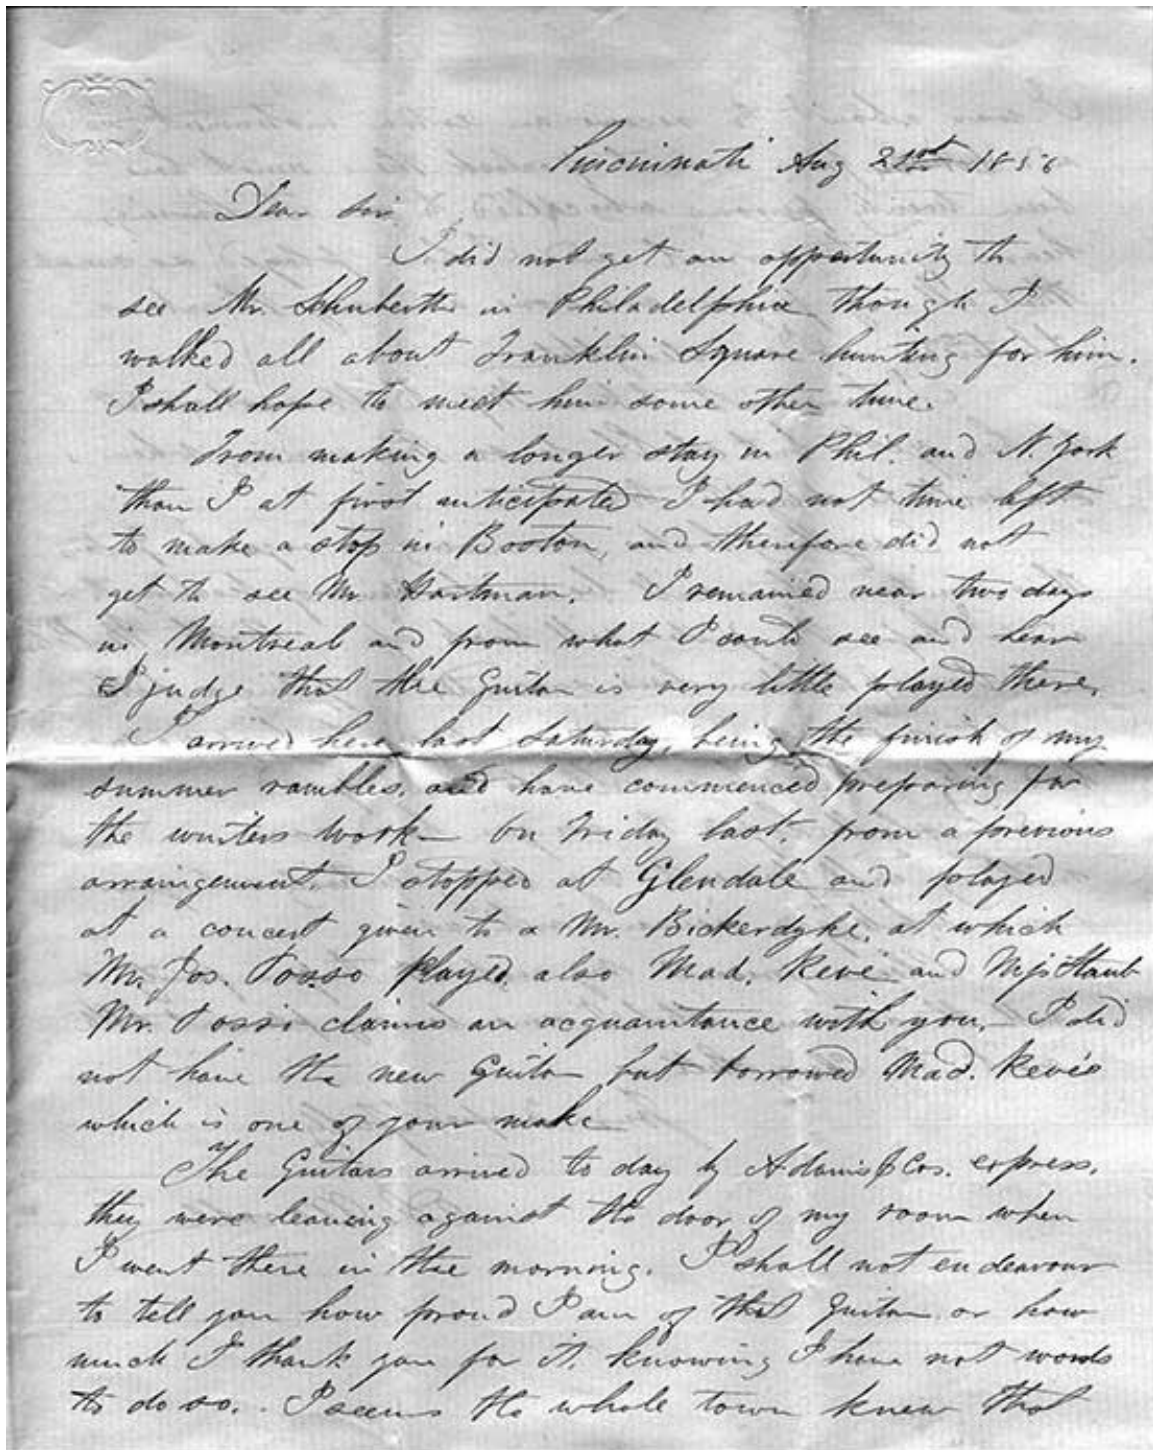 Cincinnati Aug 21st 1856
Dear Sir,
I did not get an opportunity to
see Mr. Schuberth in Philadelphia though I
walked all about Franklin Square hunting for him.
I shall hope to meet him some other time.
From making a longer stay in Phil. and N. York
than I at first anticipated I had not time left
to make a stop in Boston, and therefore did not
get to see Mr Hartman. I remained near two days
in Montreal and from what I could see and hear
I judge that the Guitar is very little played there.
I arrived here last Saturday, being the finish of my
summer rambles, and have commenced preparing for
the winters work— On Friday last, from a previous
arraingement, I stopped at Glendale and played
at a concert given to a Mr. Bickerdyke, at which
Mr. Jos. Tosso played, also Mad. Revé and Miss Staub
Mr. Tosso claims an acquaintance with you,— I did
not have the new Guitar but borrowed Mad. Revé's
which is one of your make
The Guitars arrived to day by Adams & Cos. express,
they were leaning against the door of my room when
I went there in the morning. I shall not endeavour
to tell you how proud I am of that Guitar or how
much I thank you for it, knowing I have not words
to do so. I seems the whole town knew that